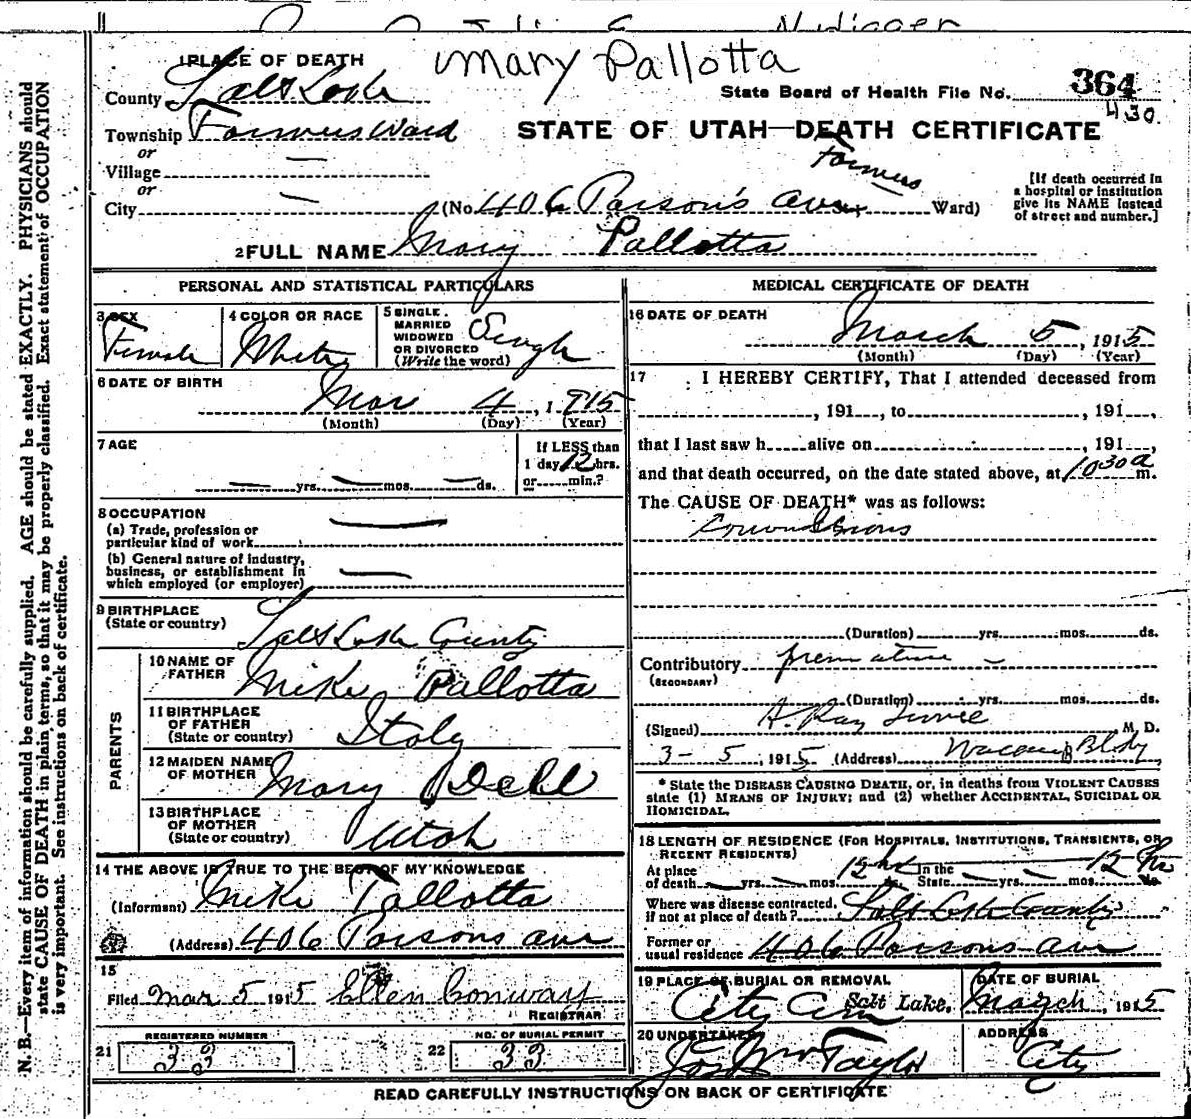 Mary Pallotta
1 PLACE OF DEATH
County Salt Lake
State Board of Health File No. 364
430
Township Farmers Ward
STATE OF UTAH—DEATH CERTIFICATE
or
Village —
or
City —
(No. 406 Parson's ave, Farmers Ward)
[If death occurred in
a hospital or institution
give its NAME instead
of street and number.]
2 FULL NAME Mary Pallotta
PERSONAL AND STATISTICAL PARTICULARS
3 SEX
Female
4 COLOR OR RACE
White
5 SINGLE,
MARRIED
WIDOWED
OR DIVORCED
(Write the word)
Single
6 DATE OF BIRTH
Mar 4, 1915
(Month) (Day) (Year)
7 AGE
— yrs. — mos. — ds.
If LESS than
1 day 12 hrs.
or min.?
8 OCCUPATION
(a) Trade, profession or
particular kind of work —
(b) General nature of industry,
business, or establishment in
which employed (or employer) —
9 BIRTHPLACE
(State or country)
Salt Lake County
PARENTS
10 NAME OF
FATHER
Mike Pallotta
11 BIRTHPLACE
OF FATHER
(State or country)
Italy
12 MAIDEN NAME
OF MOTHER
Mary Dell
13 BIRTHPLACE
OF MOTHER
(State or country)
Utah
14 THE ABOVE IS TRUE TO THE BEST OF MY KNOWLEDGE
(Informant) Mike Pallotta
(Address) 406 Parsons ave
15
Filed Mar 5 1915 Ellen Conway
REGISTRAR
REGISTERED NUMBER
21 33
NO. OF BURIAL PERMIT
22 33
MEDICAL CERTIFICATE OF DEATH
16 DATE OF DEATH
March 5, 1915
(Month) (Day) (Year)
17 I HEREBY CERTIFY, That I attended deceased from
, 191 , to , 191 ,
that I last saw h alive on , 191 ,
and that death occurred, on the date stated above, at 10 30 a m.
The CAUSE OF DEATH* was as follows:
Convulsions
(Duration) yrs. mos. ds.
Contributory premature —
(SECONDARY)
(Duration) yrs. mos. ds.
(Signed) A. Ray M. D.
3-5, 1915 (Address) Bldg
* State the DISEASE CAUSING DEATH, or, in deaths from VIOLENT CAUSES
state (1) MEANS OF INJURY; and (2) whether ACCIDENTAL, SUICIDAL OR
HOMICIDAL.
18 LENGTH OF RESIDENCE (FOR HOSPITALS, INSTITUTIONS, TRANSIENTS, OR
RECENT RESIDENTS)
At place
of death — yrs. — mos. 12 hr In the
State — yrs. — mos. 12 hr
Where was disease contracted,
if not at place of death? Salt Lake County
Former or
usual residence 406 Parsons ave
19 PLACE OF BURIAL OR REMOVAL
City Cem Salt Lake.
DATE OF BURIAL
March , 1915
20 UNDERTAKER
Jos Wm Taylor
ADDRESS
City
READ CAREFULLY INSTRUCTIONS ON BACK OF CERTIFICATE
N. B.—Every item of information should be carefully supplied. AGE should be stated EXACTLY. PHYSICIANS should
state CAUSE OF DEATH in plain terms, so that it may be properly classified. Exact statement of OCCUPATION
is very important. See instructions on back of certificate.